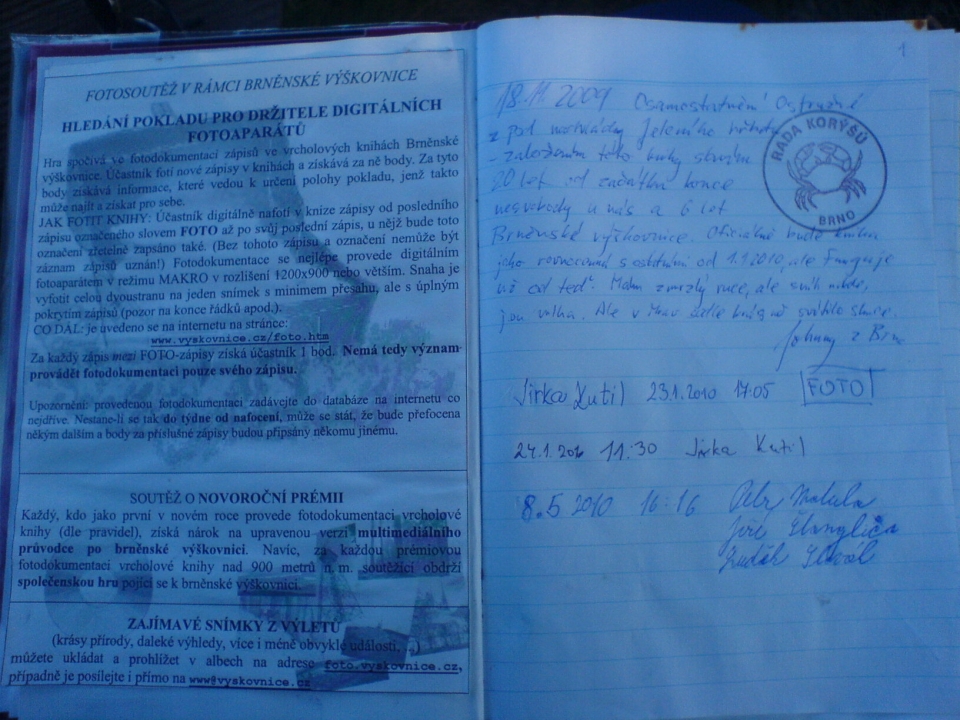 FOTOSOUTĚŽ V RÁMCI BRNĚNSKÉ VÝŠKOVNICE
HLEDÁNÍ POKLADU PRO DRŽITELE DIGITÁLNÍCH
FOTOAPARÁTŮ
Hra spočívá ve fotodokumentaci zápisů ve vrcholových knihách Brněnské
výškovnice. Účastník fotí nové zápisy v knihách a získává za ně body. Za tyto
body získává informace, které vedou k určení polohy pokladu, jenž takto
může najít a získat pro sebe.
JAK FOTIT KNIHY: Účastník digitálně nafotí v knize zápisy od posledního
zápisu označeného slovem FOTO až po svůj poslední zápis, u nějž bude toto
označení zřetelně zapsáno také. (Bez tohoto zápisu a označení nemůže být
záznam zápisů uznán!) Fotodokumentace se nejlépe provede digitálním
fotoaparátem v režimu MAKRO v rozlišení 1200x900 nebo větším. Snaha je
vyfotit celou dvoustranu na jeden snímek s minimem přesahu, ale s úplným
pokrytím zápisů (pozor na konce řádků apod.).
CO DÁL: je uvedeno se na internetu na stránce:
www.vyskovnice.cz/foto.htm
Za každý zápis mezi FOTO-zápisy získá účastník 1 bod. Nemá tedy význam
provádět fotodokumentaci pouze svého zápisu.
Upozornění: provedenou fotodokumentaci zadávejte do databáze na internetu co
nejdříve. Nestane-li se tak do týdne od nafocení, může se stát, že bude přefocena
někým dalším a body za příslušné zápisy budou připsány někomu jinému.
SOUTĚŽ O NOVOROČNÍ PRÉMII
Každý, kdo jako první v novém roce provede fotodokumentaci vrcholové
knihy (dle pravidel), získá nárok na upravenou verzi multimediálního
průvodce po brněnské výškovnici. Navíc, za každou prémiovou
fotodokumentaci vrcholové knihy nad 900 metrů n. m. soutěžící obdrží
společenskou hru pojící se k brněnské výškovnici.
ZAJÍMAVÉ SNÍMKY Z VÝLETŮ
(krásy přírody, daleké výhledy, více i méně obvyklé události, ...)
můžete ukládat a prohlížet v albech na adrese foto.vyskovnice.cz,
případně je posílejte i přímo na www@vyskovnice.cz
1
18.11.2009 Osamostatnění Ostružné
z pod nadvlády Jeleního
- založením této knihy slavím
20 let od začátku konce
nesvobody u nás a 6 let
Brněnské výškovnice. Oficiálně bude kniha
jeho rovnocenná s ostatními od 1.1.2010, ale funguje
už od teď. Mám zmrzlý ruce, ale sníh nikde,
jen mlha. Ale v sedle krásně svítilo slunce.
Johnny z Brna
RADA KORÝŠŮ
BRNO
Jirka Kutil 23.1.2010 17:05 FOTO
24.1.2010 11:30 Jirka Kutil
8.5 2010 16:16 Petr
Jiří